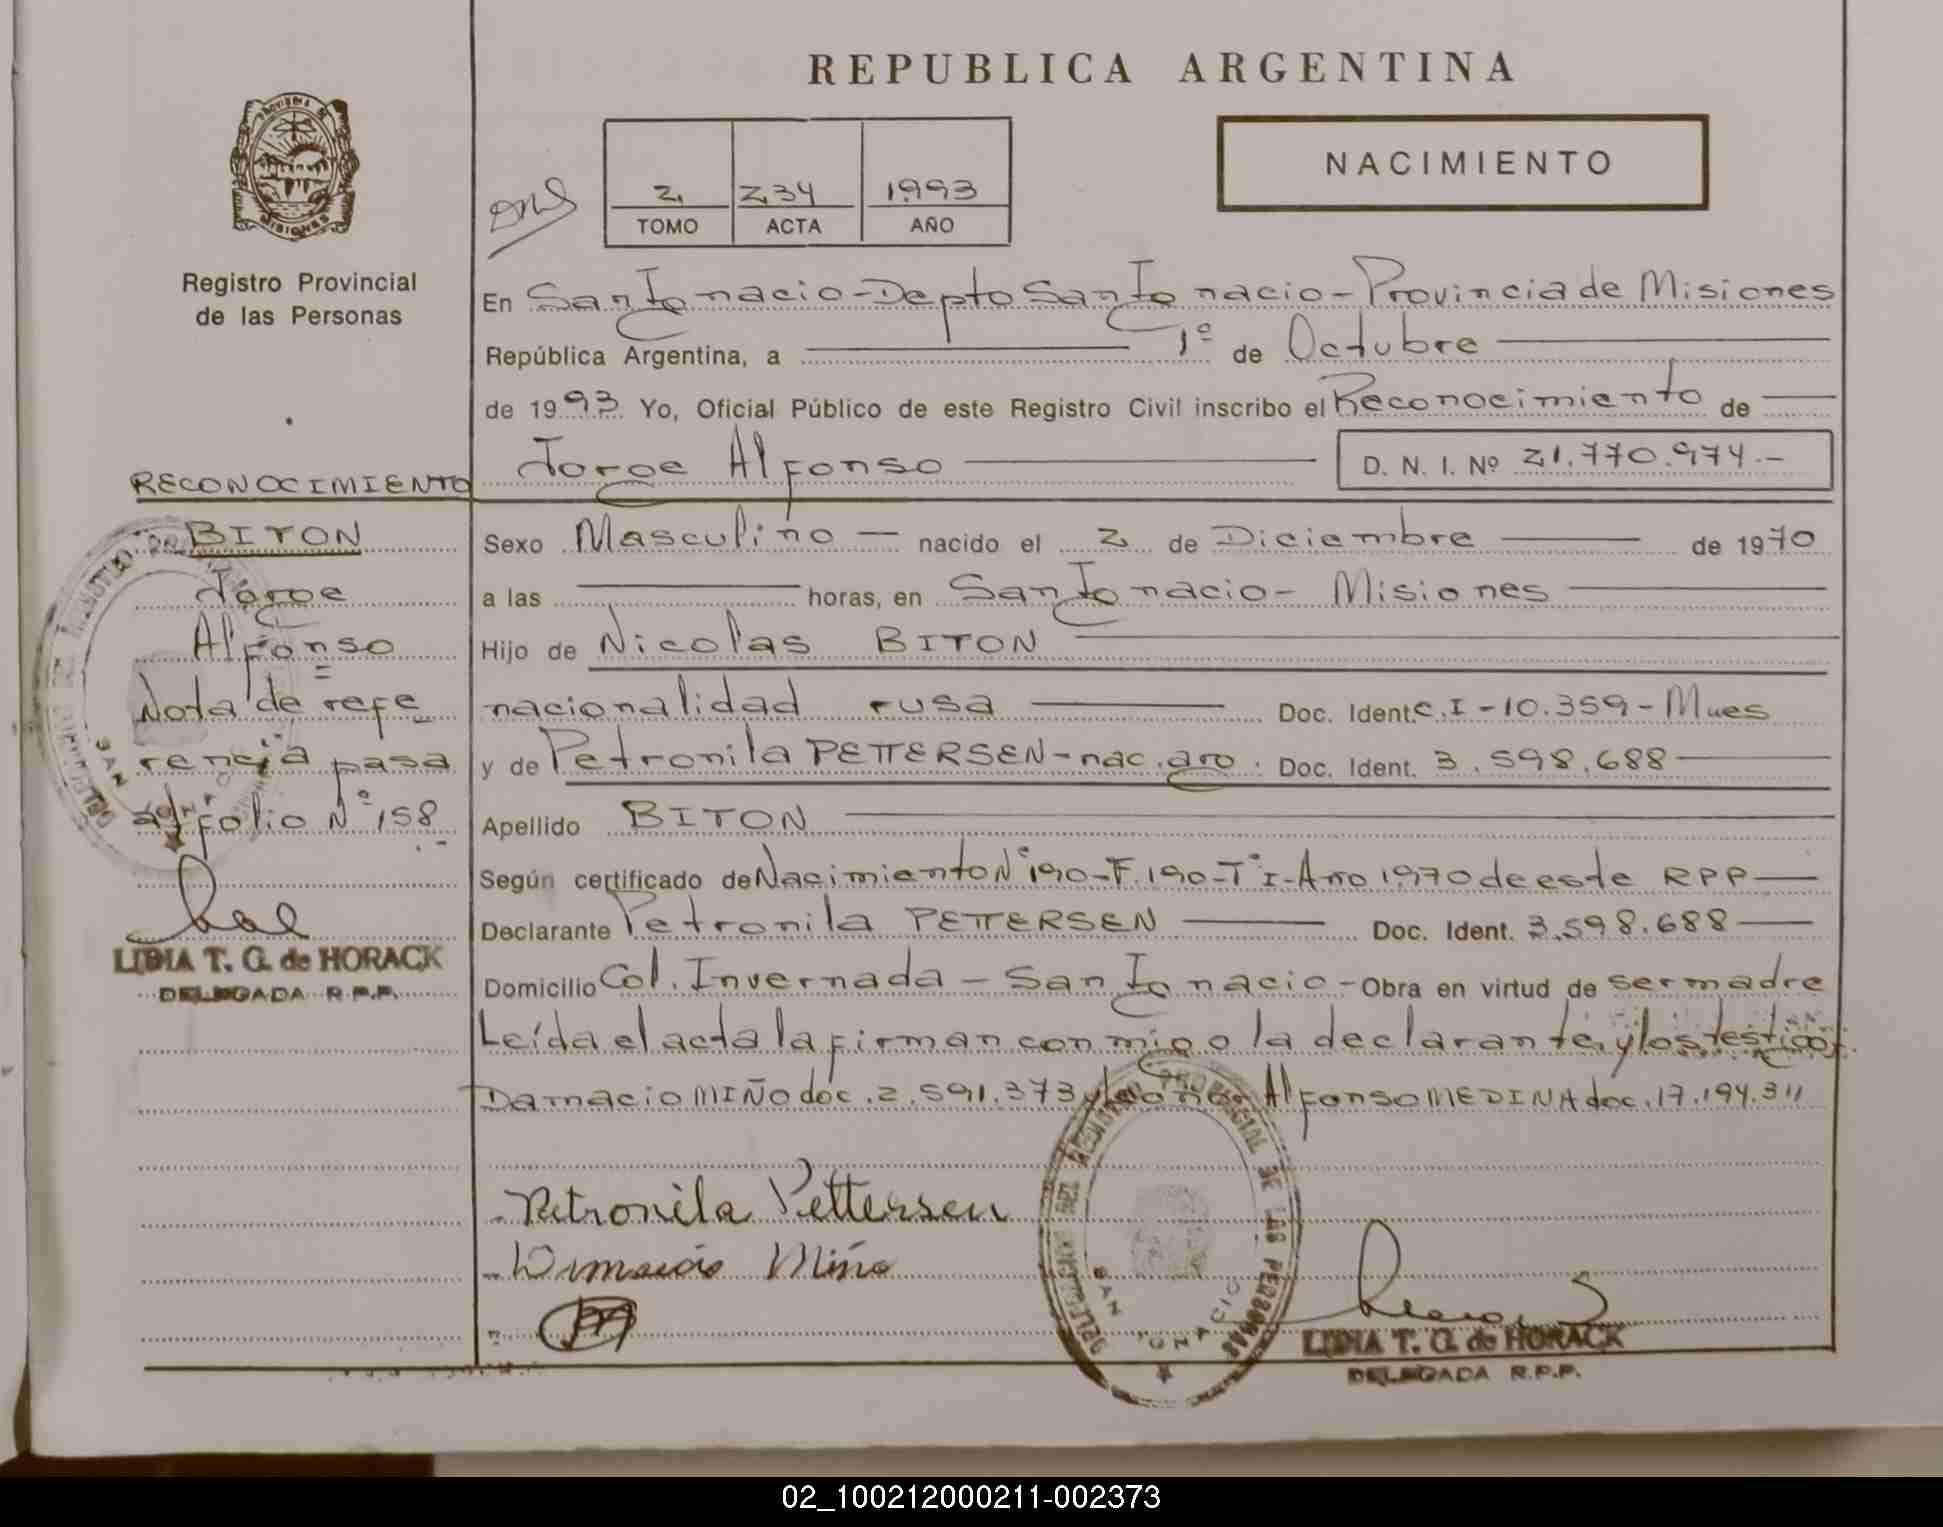 REPUBLICA ARGENTINA
NACIMIENTO
2 234 1993
TOMO ACTA AÑO
PROVINCIA DE
MISIONES
Registro Provincial
de las Personas
En San Ignacio - Depto San Ignacio - Provincia de Misiones
República Argentina, a 1º de Octubre
de 1993 Yo, Oficial Público de este Registro Civil inscribo el Reconocimiento de
Jorge Alfonso D. N. I. Nº 21.770.974.-
RECONOCIMIENTO
BITON
Jorge
Alfonso
=
Nota de refe
rencia pasa
al folio Nº 158
.-
LIDIA T. G. de HORACK
DELEGADA R.P.P.
Sexo Masculino - nacido el 2 de Diciembre de 1970
a las horas, en San Ignacio - Misiones
Hijo de Nicolas BITON
nacionalidad rusa Doc. Ident. C.I - 10.359 - Mnes
y de Petronila PETTERSEN - nac. arg. Doc. Ident. 3.598.688
Apellido BITON
Según certificado de Nacimiento Nº 190 - F. 190 - Tº I - Año 1970 de este RPP
Declarante Petronila PETTERSEN Doc. Ident. 3.598.688
Domicilio Col. Invernada - San Ignacio - Obra en virtud de ser madre
Leída el acta la firman conmigo la declarante, y los testigos
Damacio MIÑO doc. 2.591.373 y Alfonso MEDINA doc. 17.194.311
Petronila Pettersen
Damacio Miño
DELEGACION DEL REGISTRO PROVINCIAL DE LAS PERSONAS
SAN IGNACIO
LIDIA T. G. de HORACK
DELEGADA R.P.P.
02_100212000211-002373